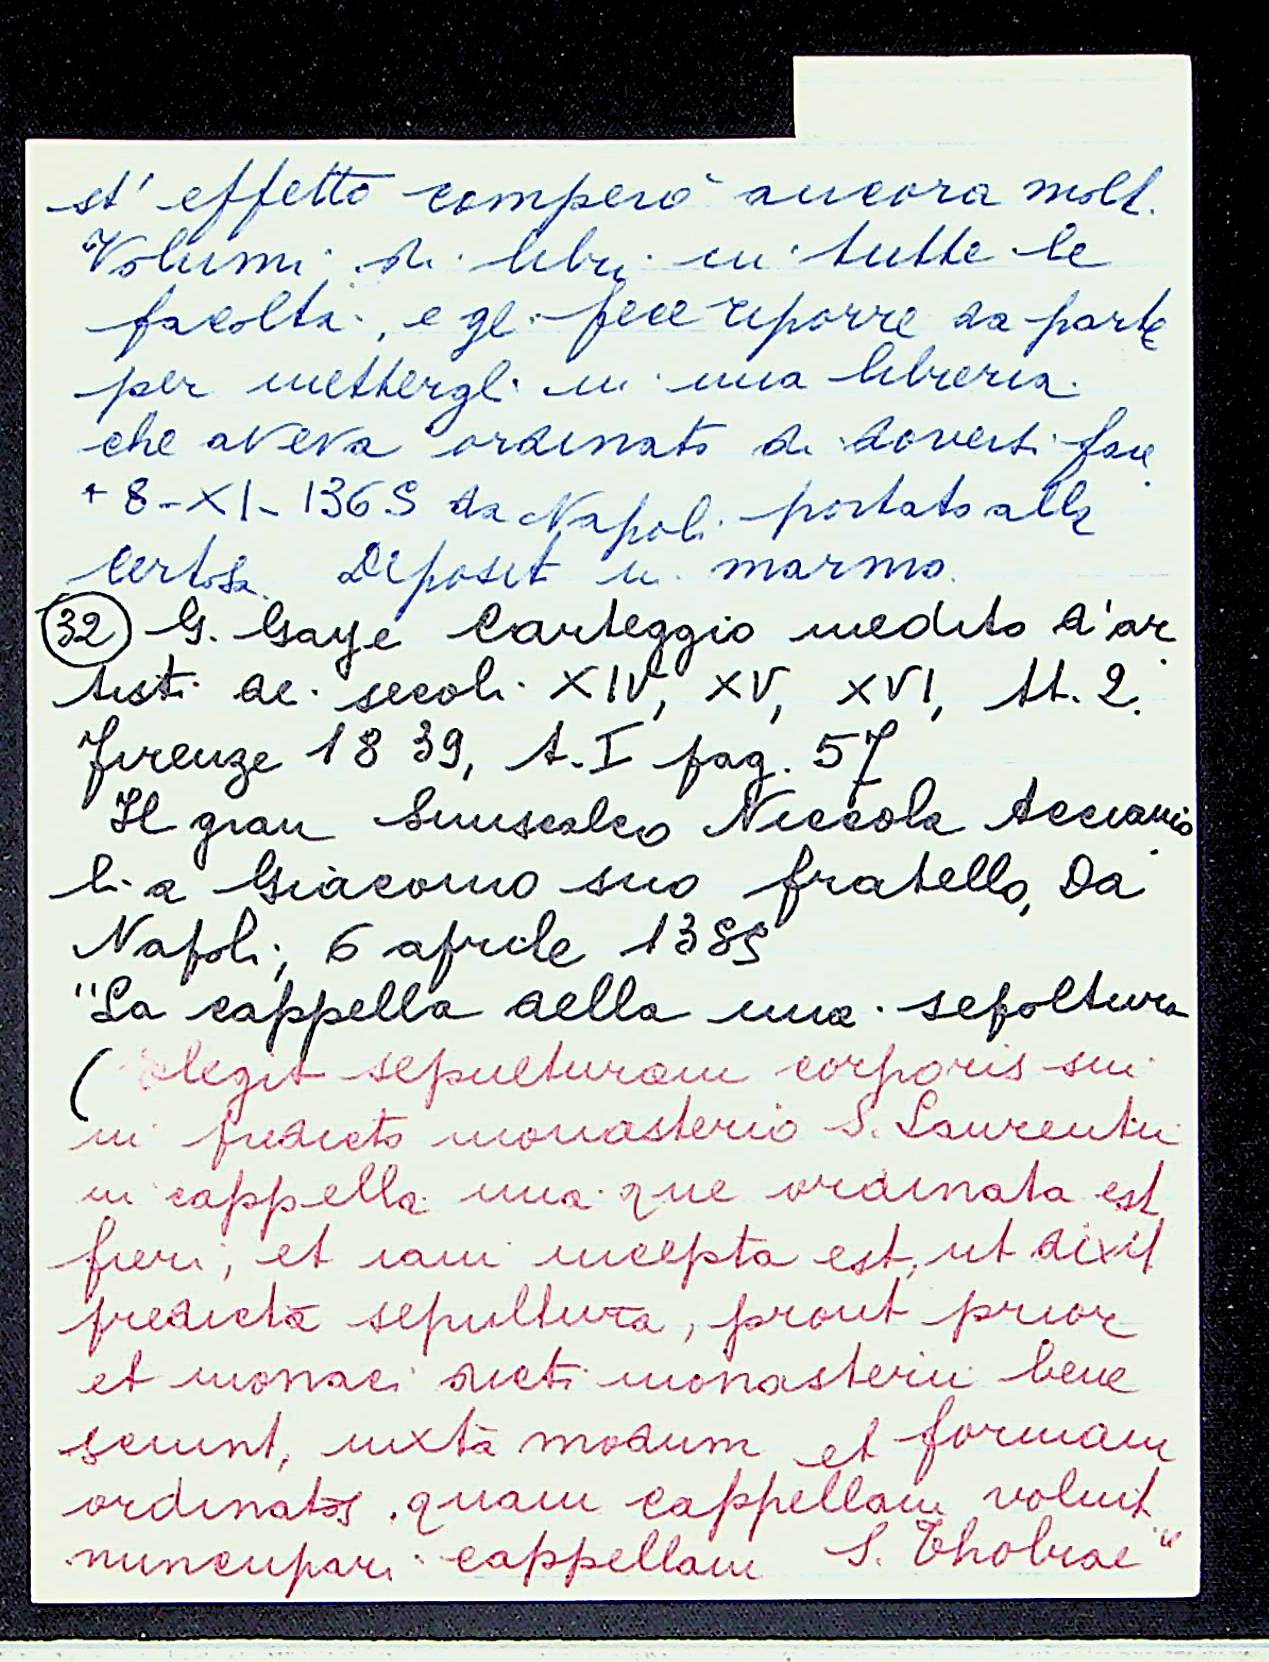 st' effetto comperò ancora molt.
Volumi di libri in tutte le
facoltà, e gli fece riporre da parte
per mettergli in una libreria
che aveva ordinato di doversi fare
+ 8-XI-1365 da Napoli portato alla
Certosa. Deposit in marmo.
(32) G. Gaye Carteggio inedito d'ar
tisti dei secoli XIV, XV, XVI, tt. 2.
Firenze 1839, t. I pag. 57
Il gran Siniscalco Niccola Acciaiuo
li a Giacomo suo fratello, Da
Napoli, 6 aprile 1385
"La cappella della mia sepoltura
( Elegit sepulturam corporis sui
in predicto monasterio S. Laurentii
in cappella una que ordinata est
fieri, et iam incepta est, ut dixit
predicta sepultura, prout prior
et monaci dicti monasterii bene
sciunt, iuxta modum et formam
ordinatos, quam cappellam voluit
nuncupari cappellam S. Thobiae"